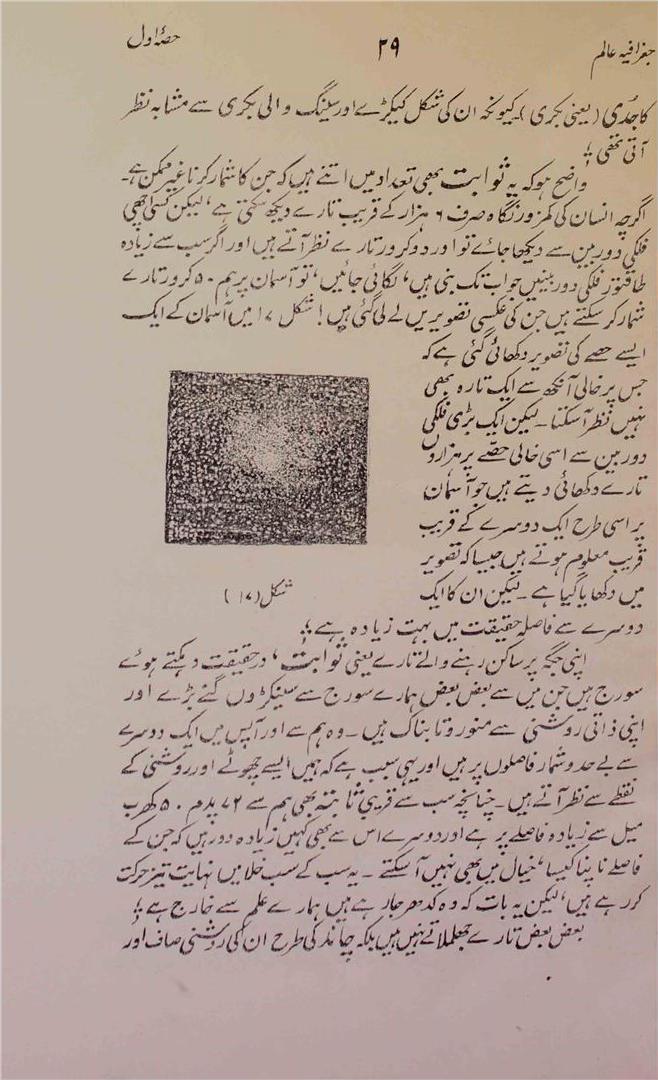 جغرافیہ عالم
۲۹
حصۂ اول
کا جَدْی (یعنی بکری) کیونکہ ان کی شکل کیکڑے اور سینگ والی بکری سے مشابہ نظر
آتی تھی ؛
واضح ہو کہ یہ ثوابت بھی تعداد میں اتنے ہیں کہ جن کا شمار کرنا غیر ممکن ہے۔
اگرچہ انسان کی کمزور نگاہ صرف ۶ ہزار کے قریب تارے دیکھ سکتی ہے، لیکن کسی اچھی
فلکی دوربین سے دیکھا جائے تو اور دو کرور تارے نظر آتے ہیں اور اگر سب سے زیادہ
طاقتور فلکی دوربینیں جو اب تک بنی ہیں، لگائی جائیں، تو آسمان پر ہم ۵۰ کرور تارے
شمار کر سکتے ہیں جن کی عکسی تصویریں لے لی گئی ہیں! شکل ۱۷ میں آسمان کے ایک
ایسے حصے کی تصویر دکھائی گئی ہے کہ
جس پر خالی آنکھ سے ایک تارہ بھی
نہیں نظر آ سکتا۔ لیکن ایک بڑی فلکی
دوربین سے اسی خالی حصّے پر ہزاروں
تارے دکھائی دیتے ہیں جو آسمان
پر اسی طرح ایک دوسرے کے قریب
قریب معلوم ہوتے ہیں جیسا کہ تصویر
میں دکھایا گیا ہے۔ لیکن ان کا ایک
شکل (۱۷)
دوسرے سے فاصلہ حقیقت میں بہت زیادہ ہے ؛
اپنی جگہ پر ساکن رہنے والے تارے یعنی ثوابت، درحقیقت دہکتے ہوئے
سورج ہیں جن میں سے بعض بعض ہمارے سورج سے سینکڑوں گنے بڑے اور
اپنی ذاتی روشنی سے منور و تابناک ہیں۔ وہ ہم سے اور آپس میں ایک دوسرے
سے بے حد و شمار فاصلوں پر ہیں اور یہی سبب ہے کہ ہمیں ایسے چھوٹے اور روشنی کے
نقطے سے نظر آتے ہیں۔ چنانچہ سب سے قریبی ثابتہ بھی ہم سے ۷۲ پدم ۵۰ کھرب
میل سے زیادہ فاصلے پر ہے اور دوسرے اس سے بھی کہیں زیادہ دور ہیں کہ جن کے
فاصلے ناپنا کیسا، خیال میں بھی نہیں آ سکتے۔ یہ سب کے سب خلا میں نہایت تیز حرکت
کر رہے ہیں، لیکن یہ بات کہ وہ کدھر جا رہے ہیں ہمارے علم سے خارج ہے ؛
بعض بعض تارے جھلملاتے نہیں ہیں بلکہ چاند کی طرح ان کی روشنی صاف اور